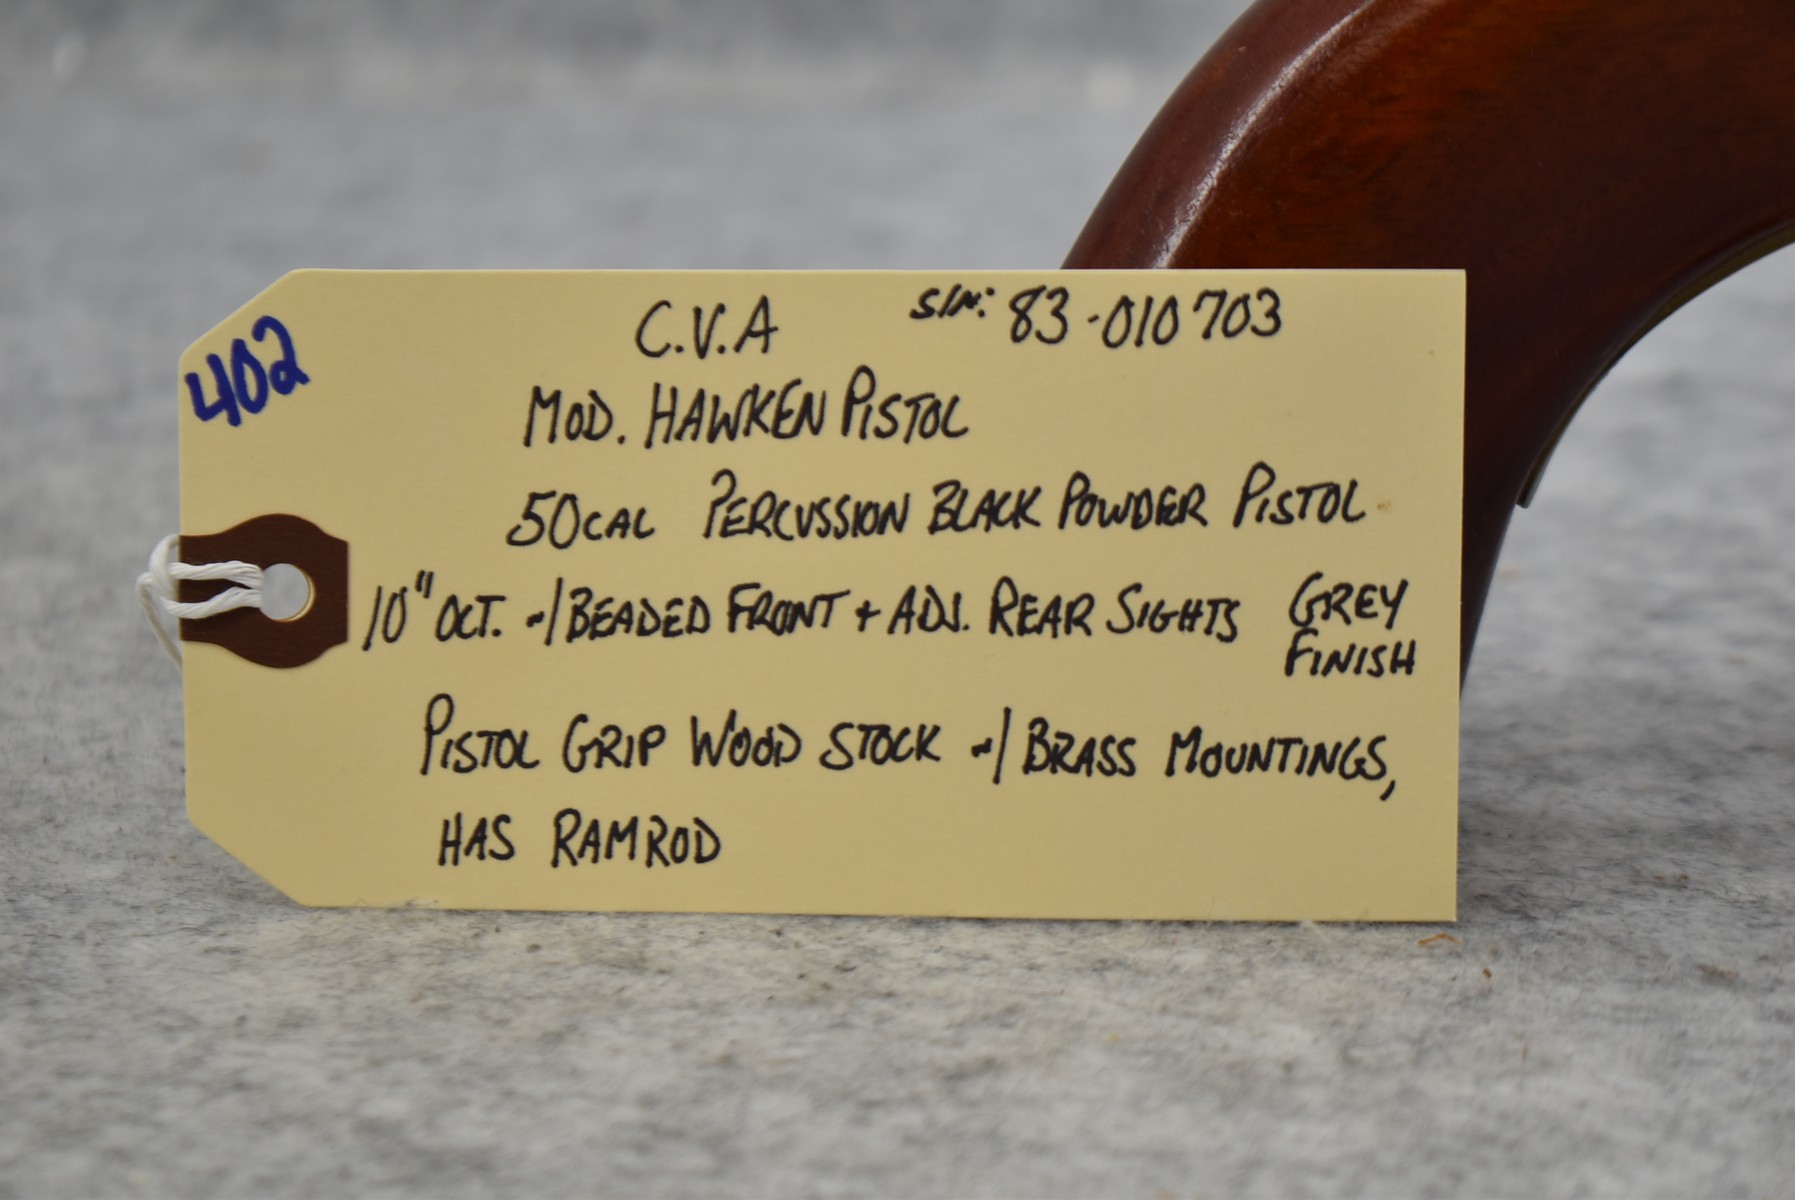 402
C.V.A S/N: 83-010703
MOD. HAWKEN PISTOL
50CAL PERCUSSION BLACK POWDER PISTOL
10" OCT. w/ BEADED FRONT + ADJ. REAR SIGHTS GREY
FINISH
PISTOL GRIP WOOD STOCK w/ BRASS MOUNTINGS,
HAS RAMROD